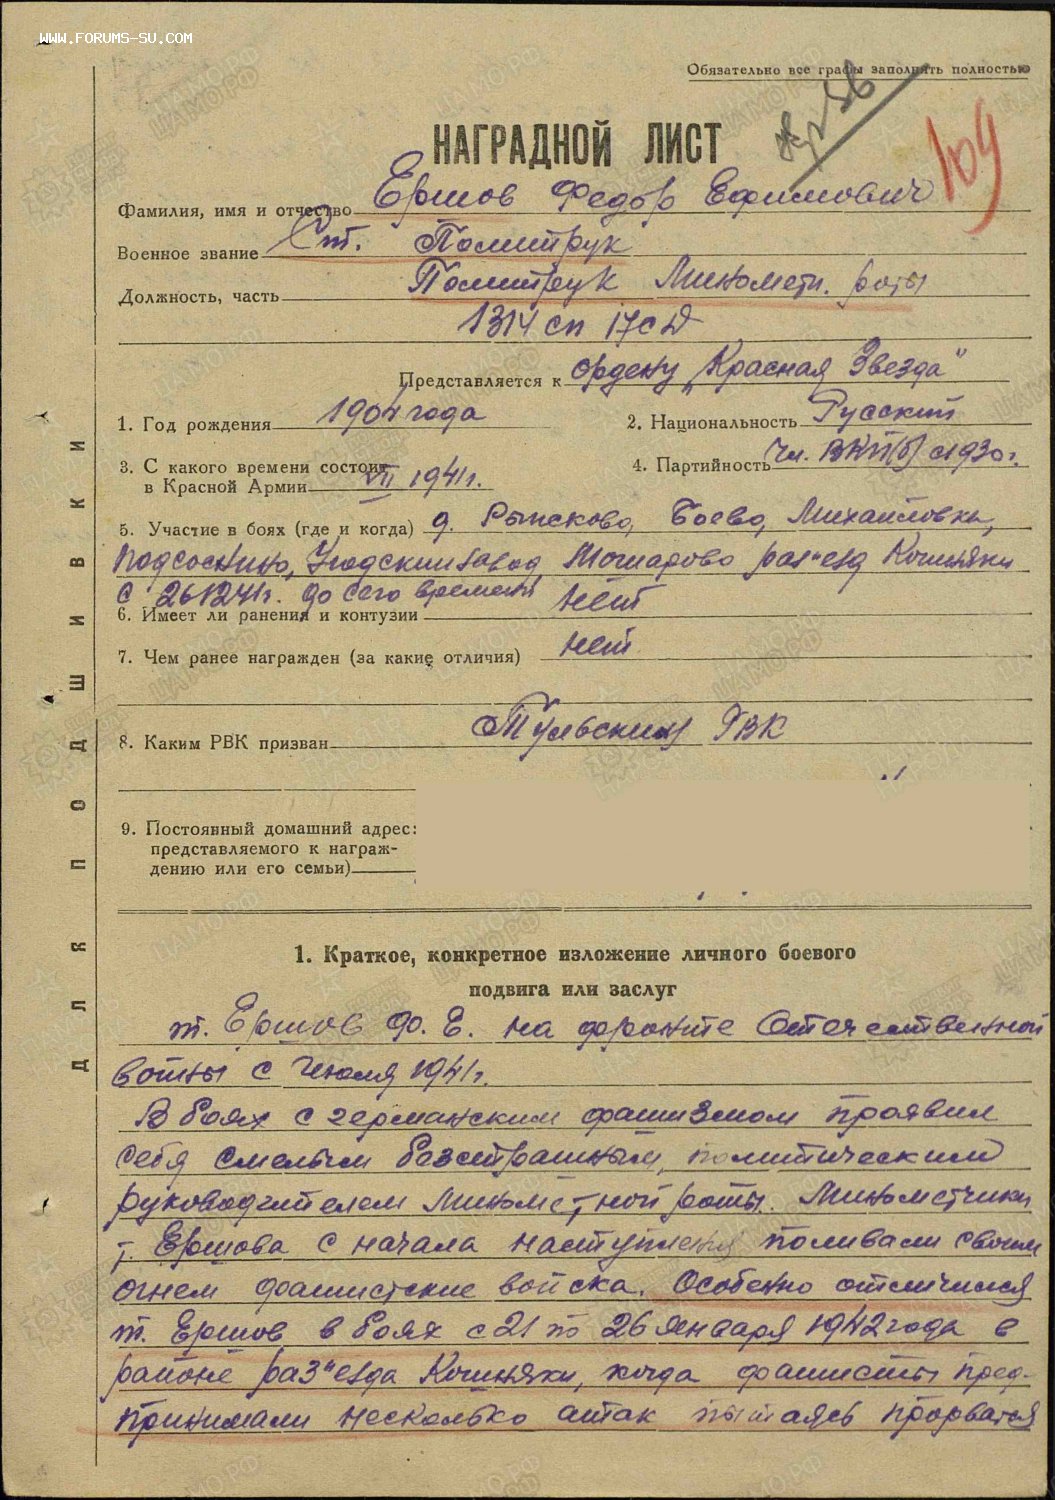 WWW.FORUMS-SU.COM
Обязательно все графы заполнять полностью
109
НАГРАДНОЙ ЛИСТ
Фамилия, имя и отчество Ершов Федор Ефимович
Военное звание Ст. Политрук
Должность, часть Политрук Миномётн. роты
1314 сп 17 сд
Представляется к ордену „Красная Звезда"
1. Год рождения 1904 года
2. Национальность Русский
3. С какого времени состоит
в Красной Армии VII 1941 г.
4. Партийность Чл. ВКП(б) с 1930 г.
5. Участие в боях (где и когда) д. Рыжково, Боево, Михайловка,
Подсоснино, Угодский завод Тошарово раз"езд Кошняки
с 26 12 41 г. до сего времени
6. Имеет ли ранения и контузии нет
7. Чем ранее награжден (за какие отличия) нет
8. Каким РВК призван Тульским ГВК
9. Постоянный домашний адрес:
представляемого к награж-
дению или его семьи)
ДЛЯ ПОДШИВКИ
1. Краткое, конкретное изложение личного боевого
подвига или заслуг
т. Ершов Ф. Е. на фронте Отечественной
войны с Июля 1941 г.
В боях с германским фашизмом проявил
себя смелым безстрашным, политическим
руководителем Миномётной роты. Минометчики
т. Ершова с начала наступления поливали своим
огнем фашистские войска. Особенно отличился
т. Ершов в боях с 21 по 26 января 1942 года в
районе раз"езда Кошняки, когда фашисты пред-
принимали несколько атак пытаясь прорватся